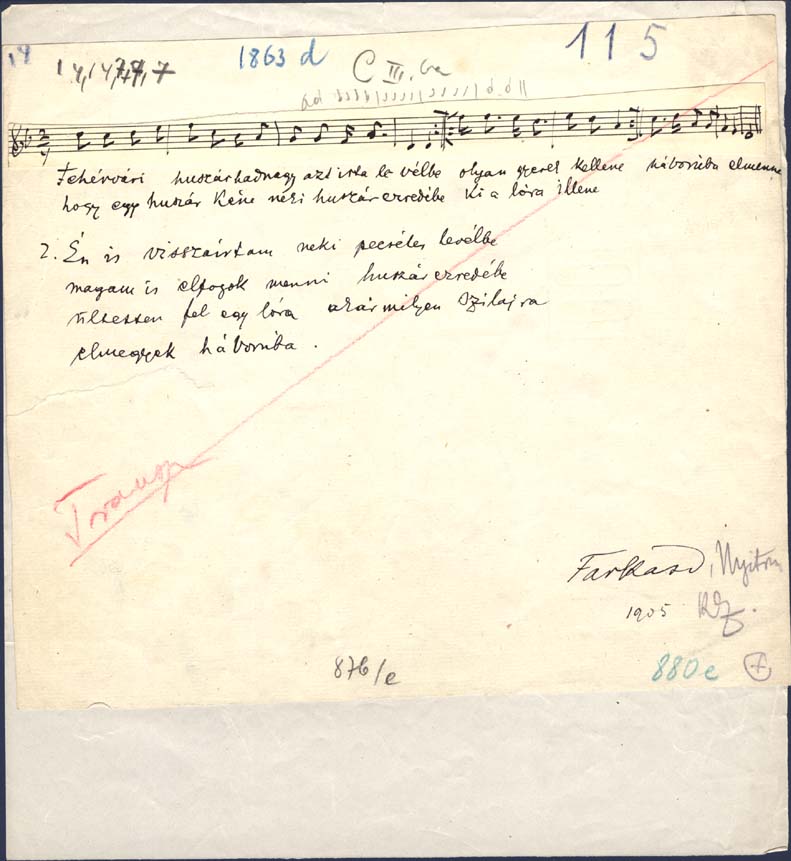 14
1863 d
115
C III. 6a
Fehérvári huszárhadnagy azt irta le vélbe olyan gyerek kellene háborúba elmenne
hogy egy huszár kéne néki huszár ezredébe ki a lóra illene
2. Én is visszaírtam neki pecsétes levélbe
magam is elfogok menni huszár ezredébe
ültessen fel egy lóra akármilyen szilajra
elmegyek háborúba.
Transp
Farkasd, Nyitra
1905 KZ.
876/e
880e